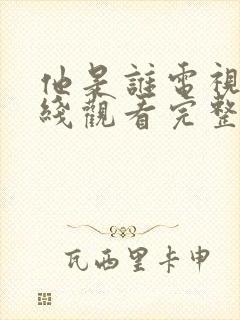 他是誰電視
綫觀看完整
瓦西里卡申